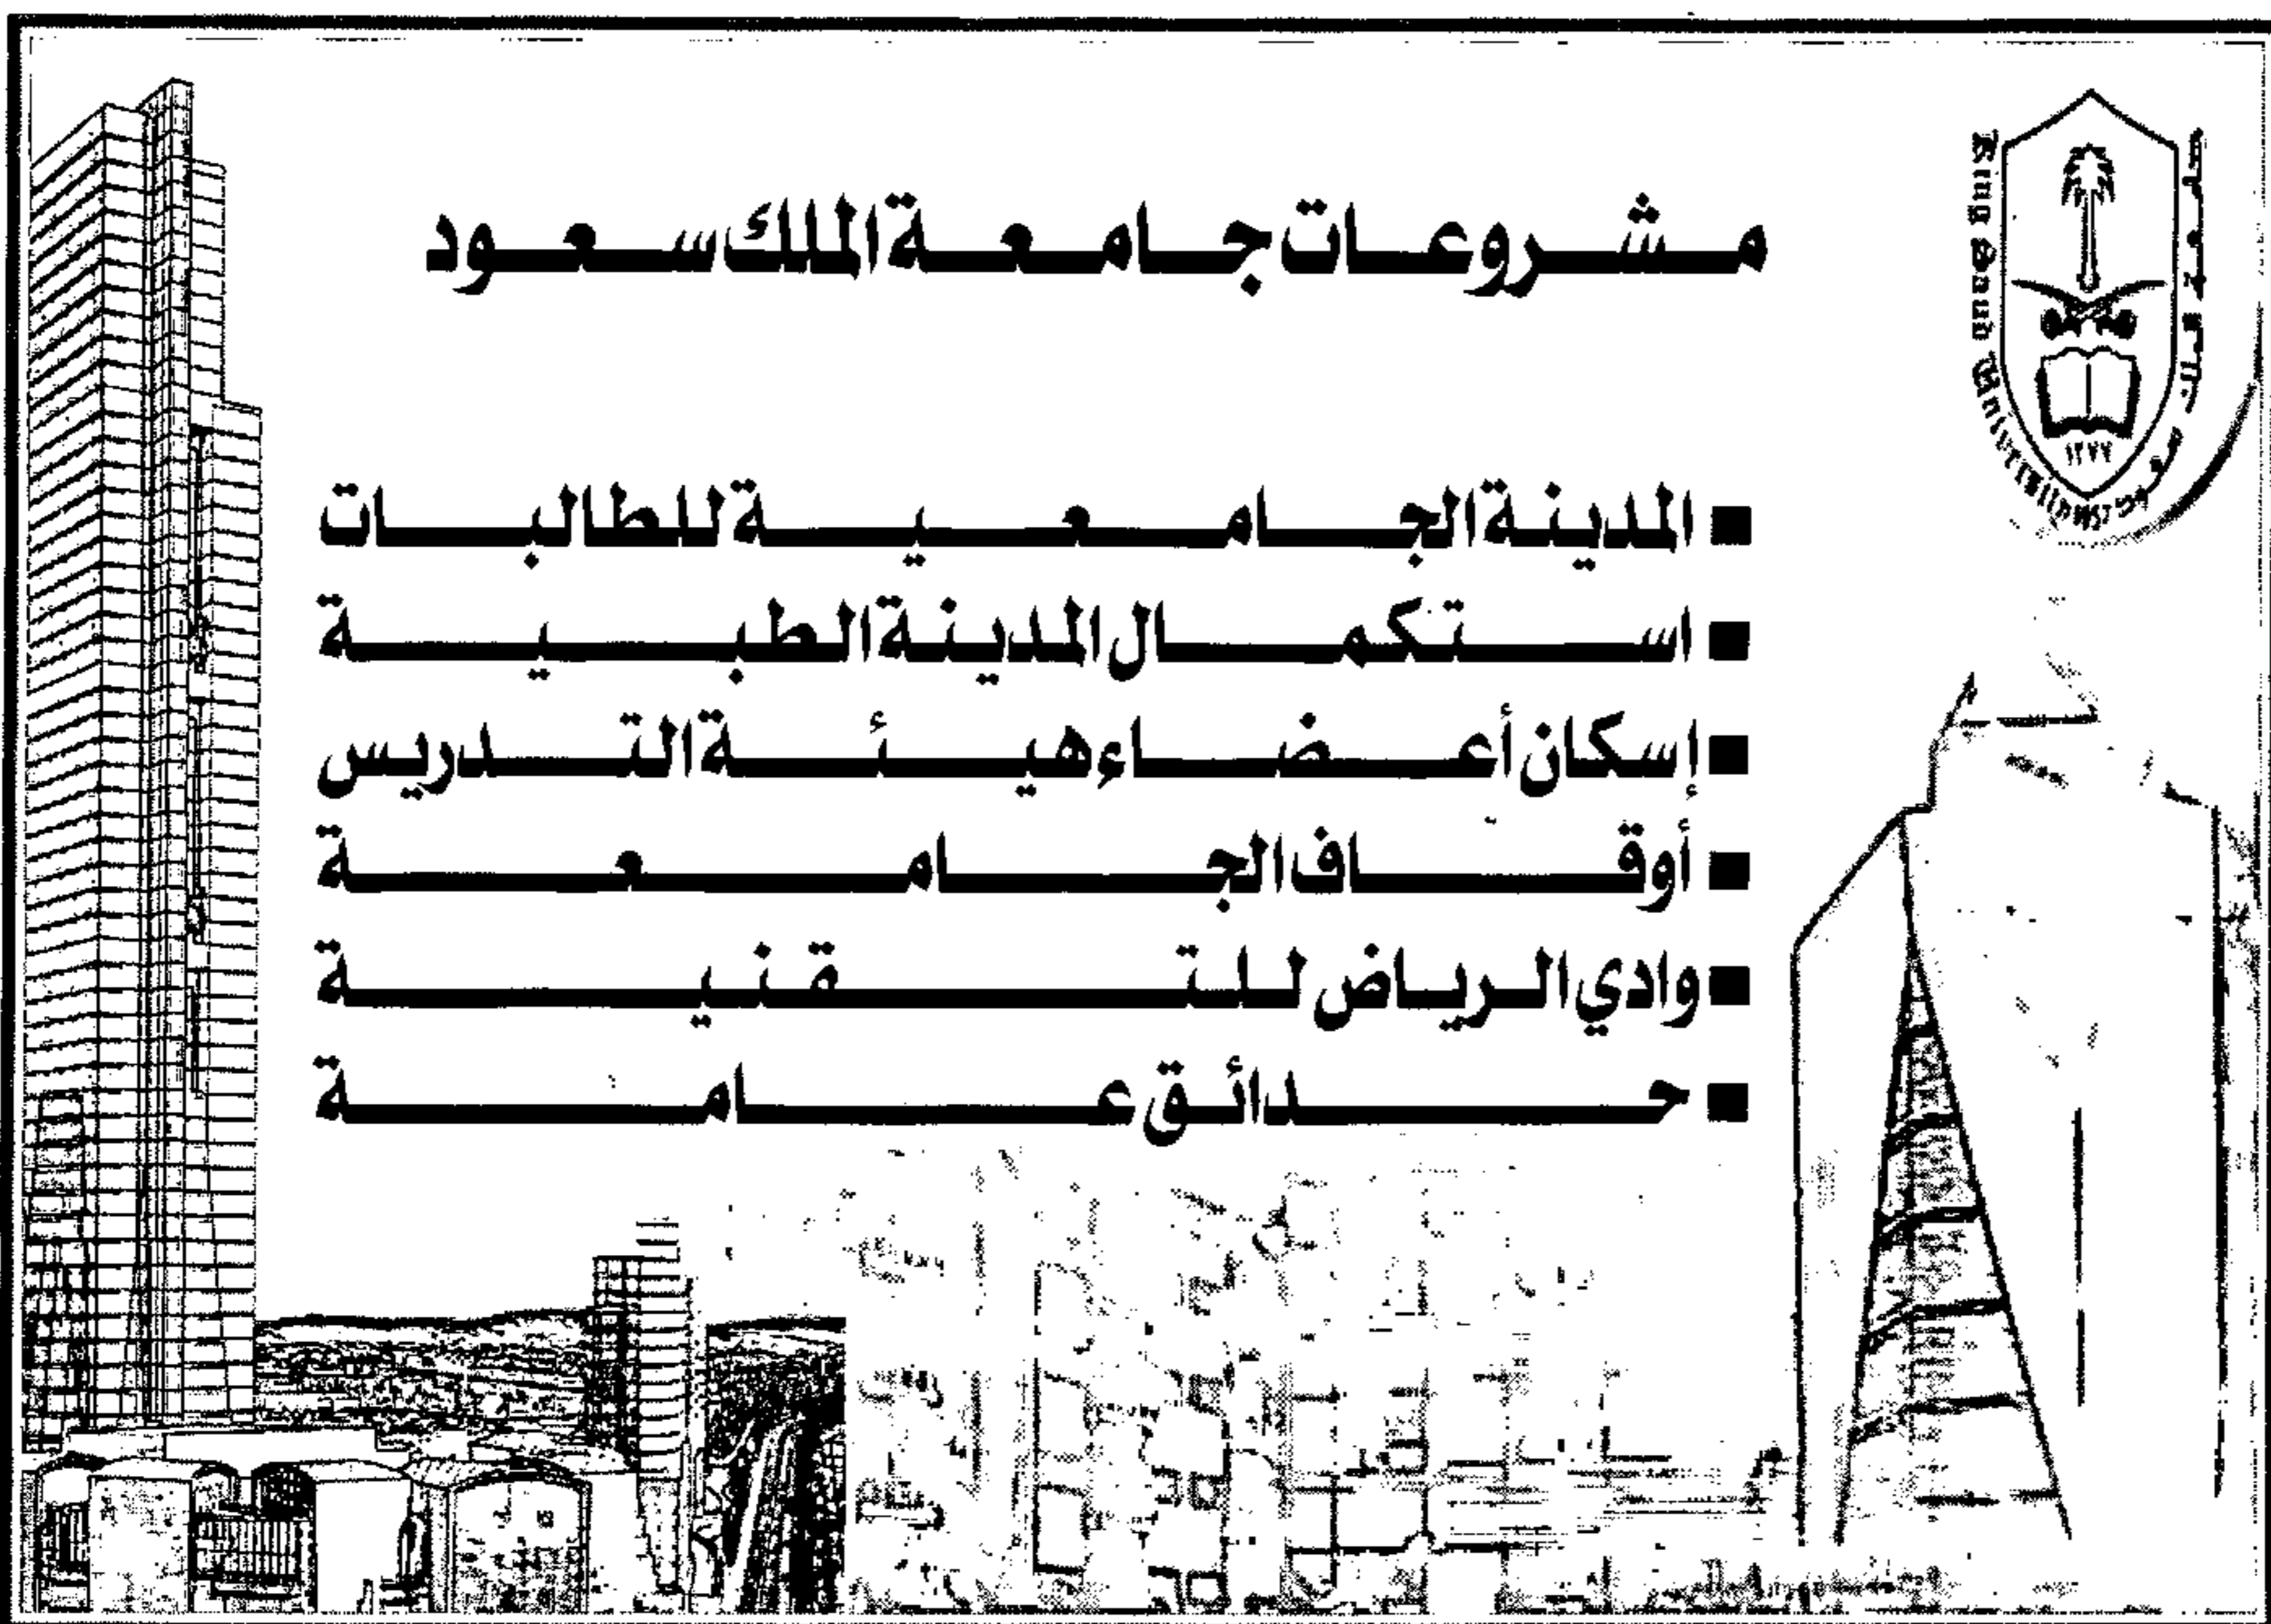 مشروعات جامعة الملك سعود
جامعة الملك سعود
King Saud University
١٣٧٧
■ المدينة الجامعية للطالبات
■ استكمال المدينة الطبية
■ إسكان أعضاء هيئة التدريس
■ أوقاف الجامعة
■ وادي الرياض للتقنية
■ حدائق عامة